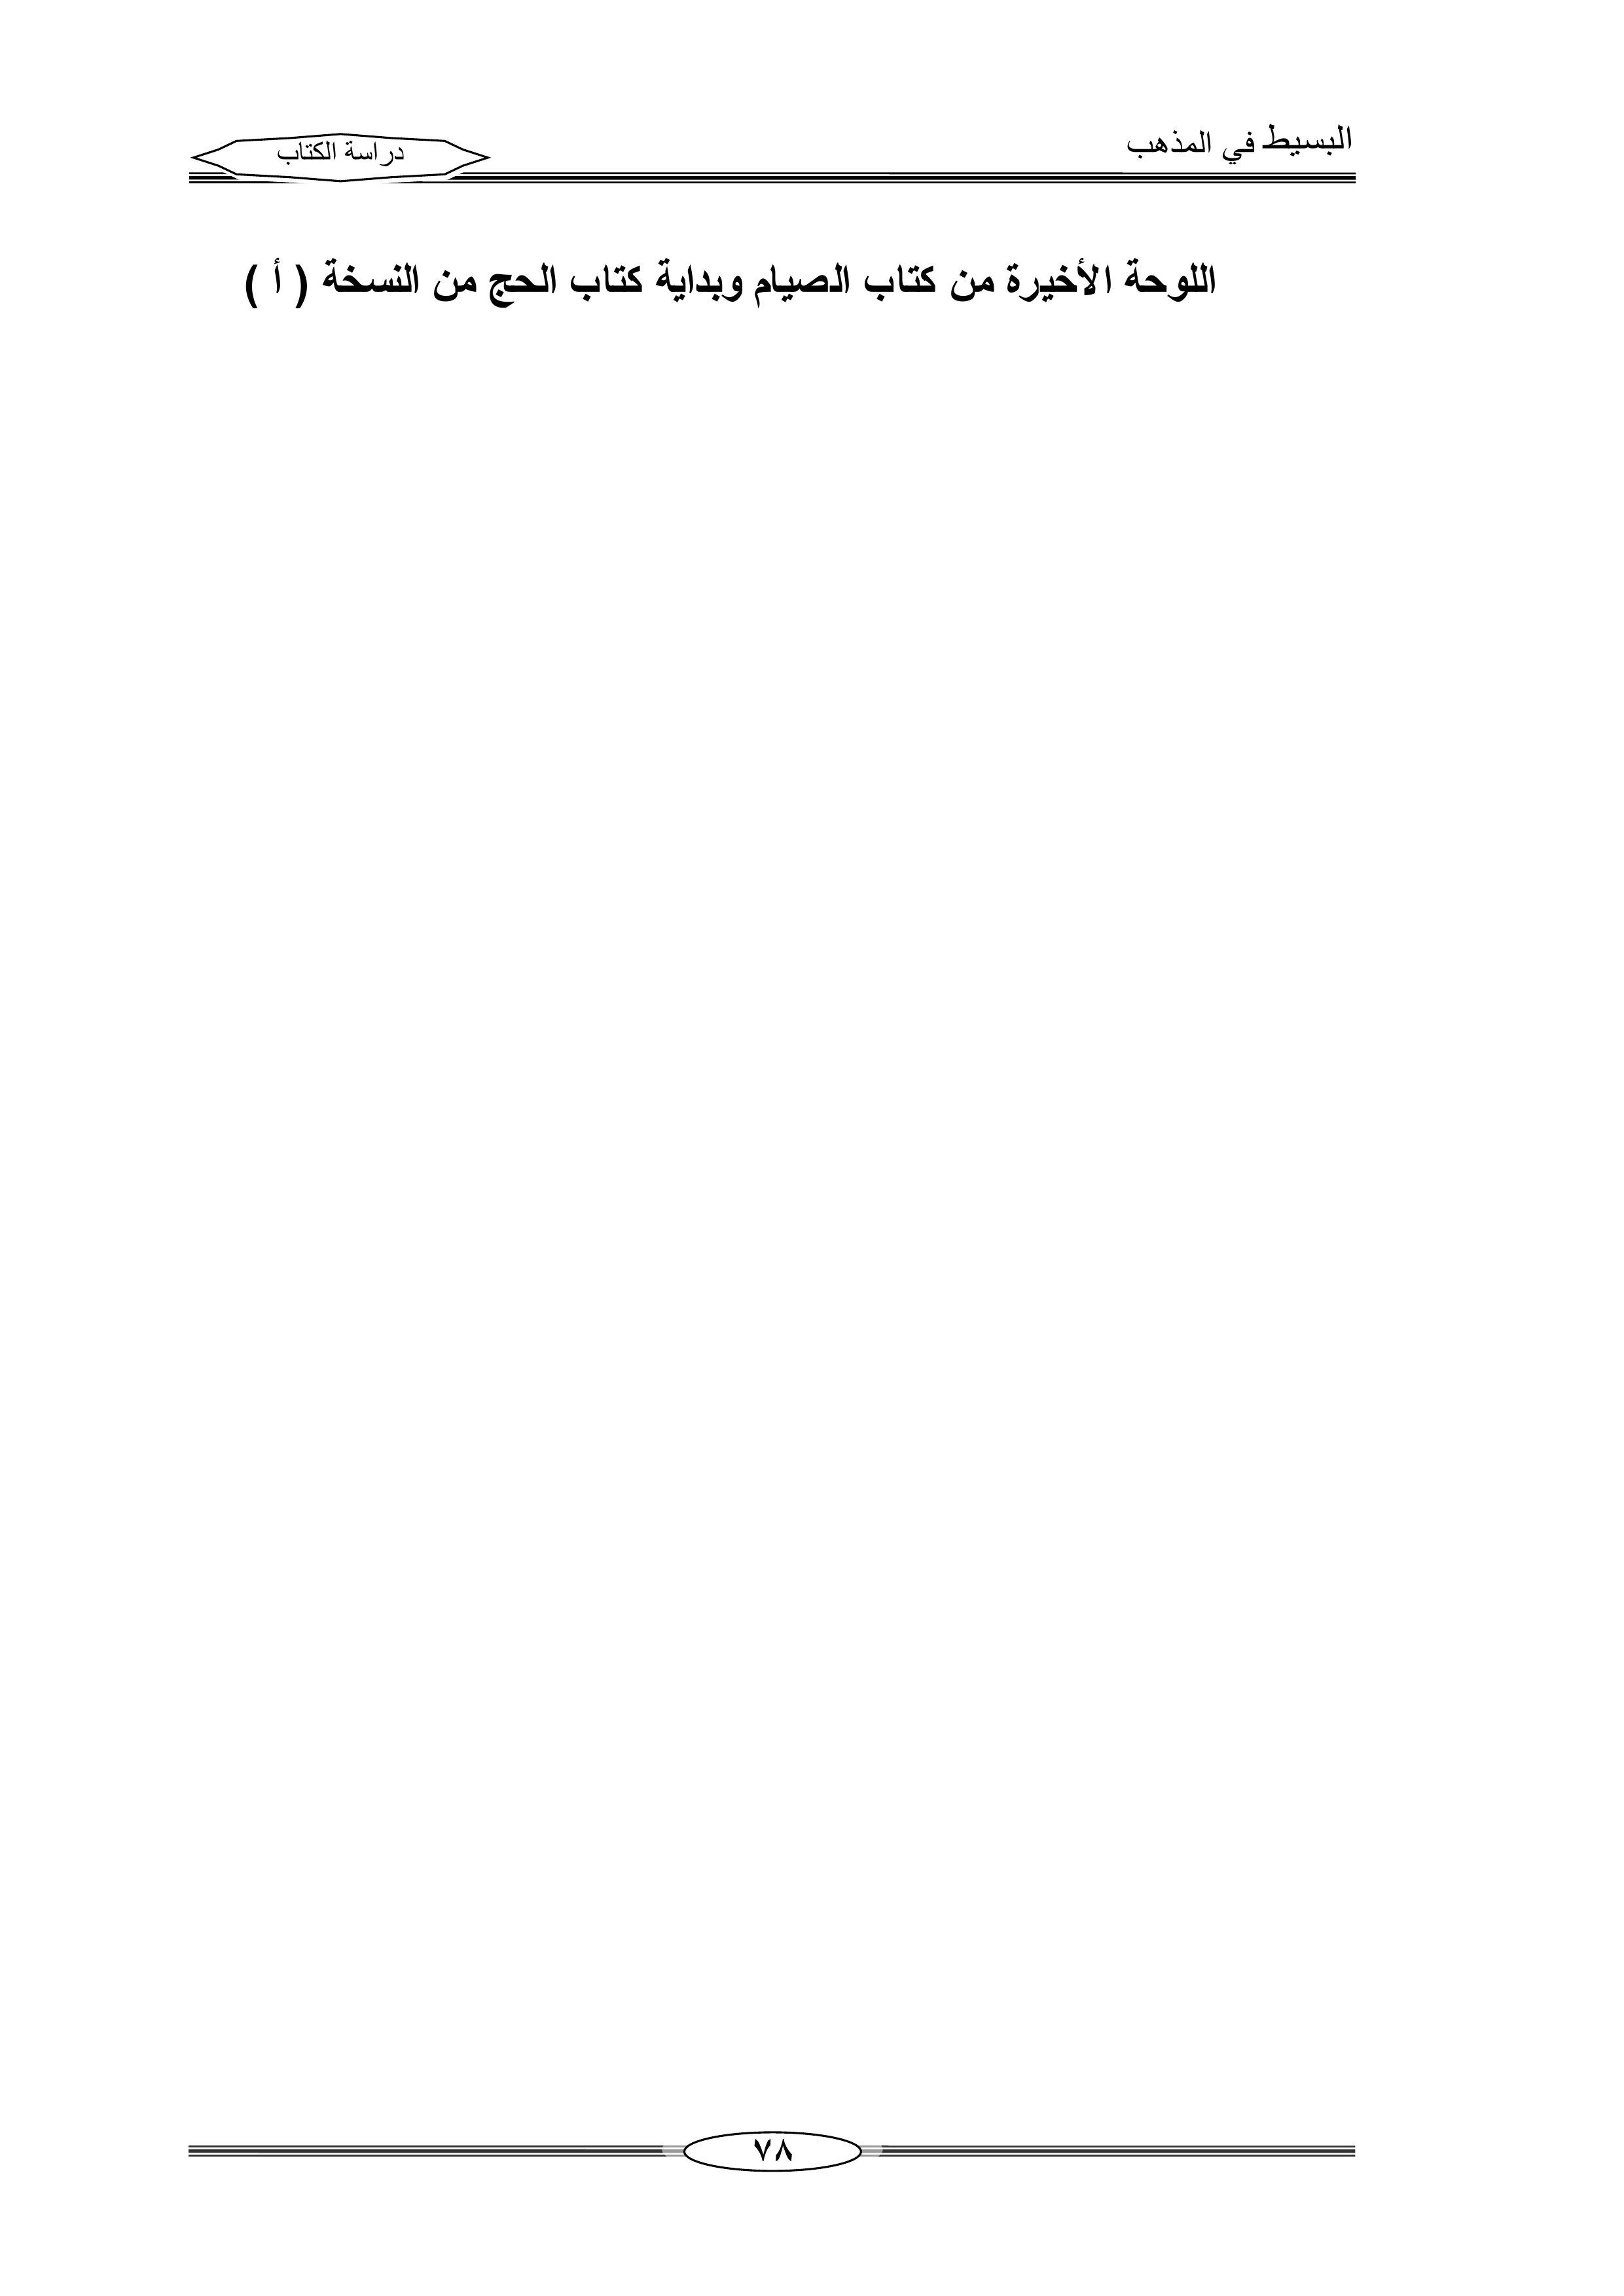 البسيط في المذهب
دراسة الكتاب
اللوحة الأخيرة من كتاب الصيام وبداية كتاب الحج من النسخة ( أ )
٧٨